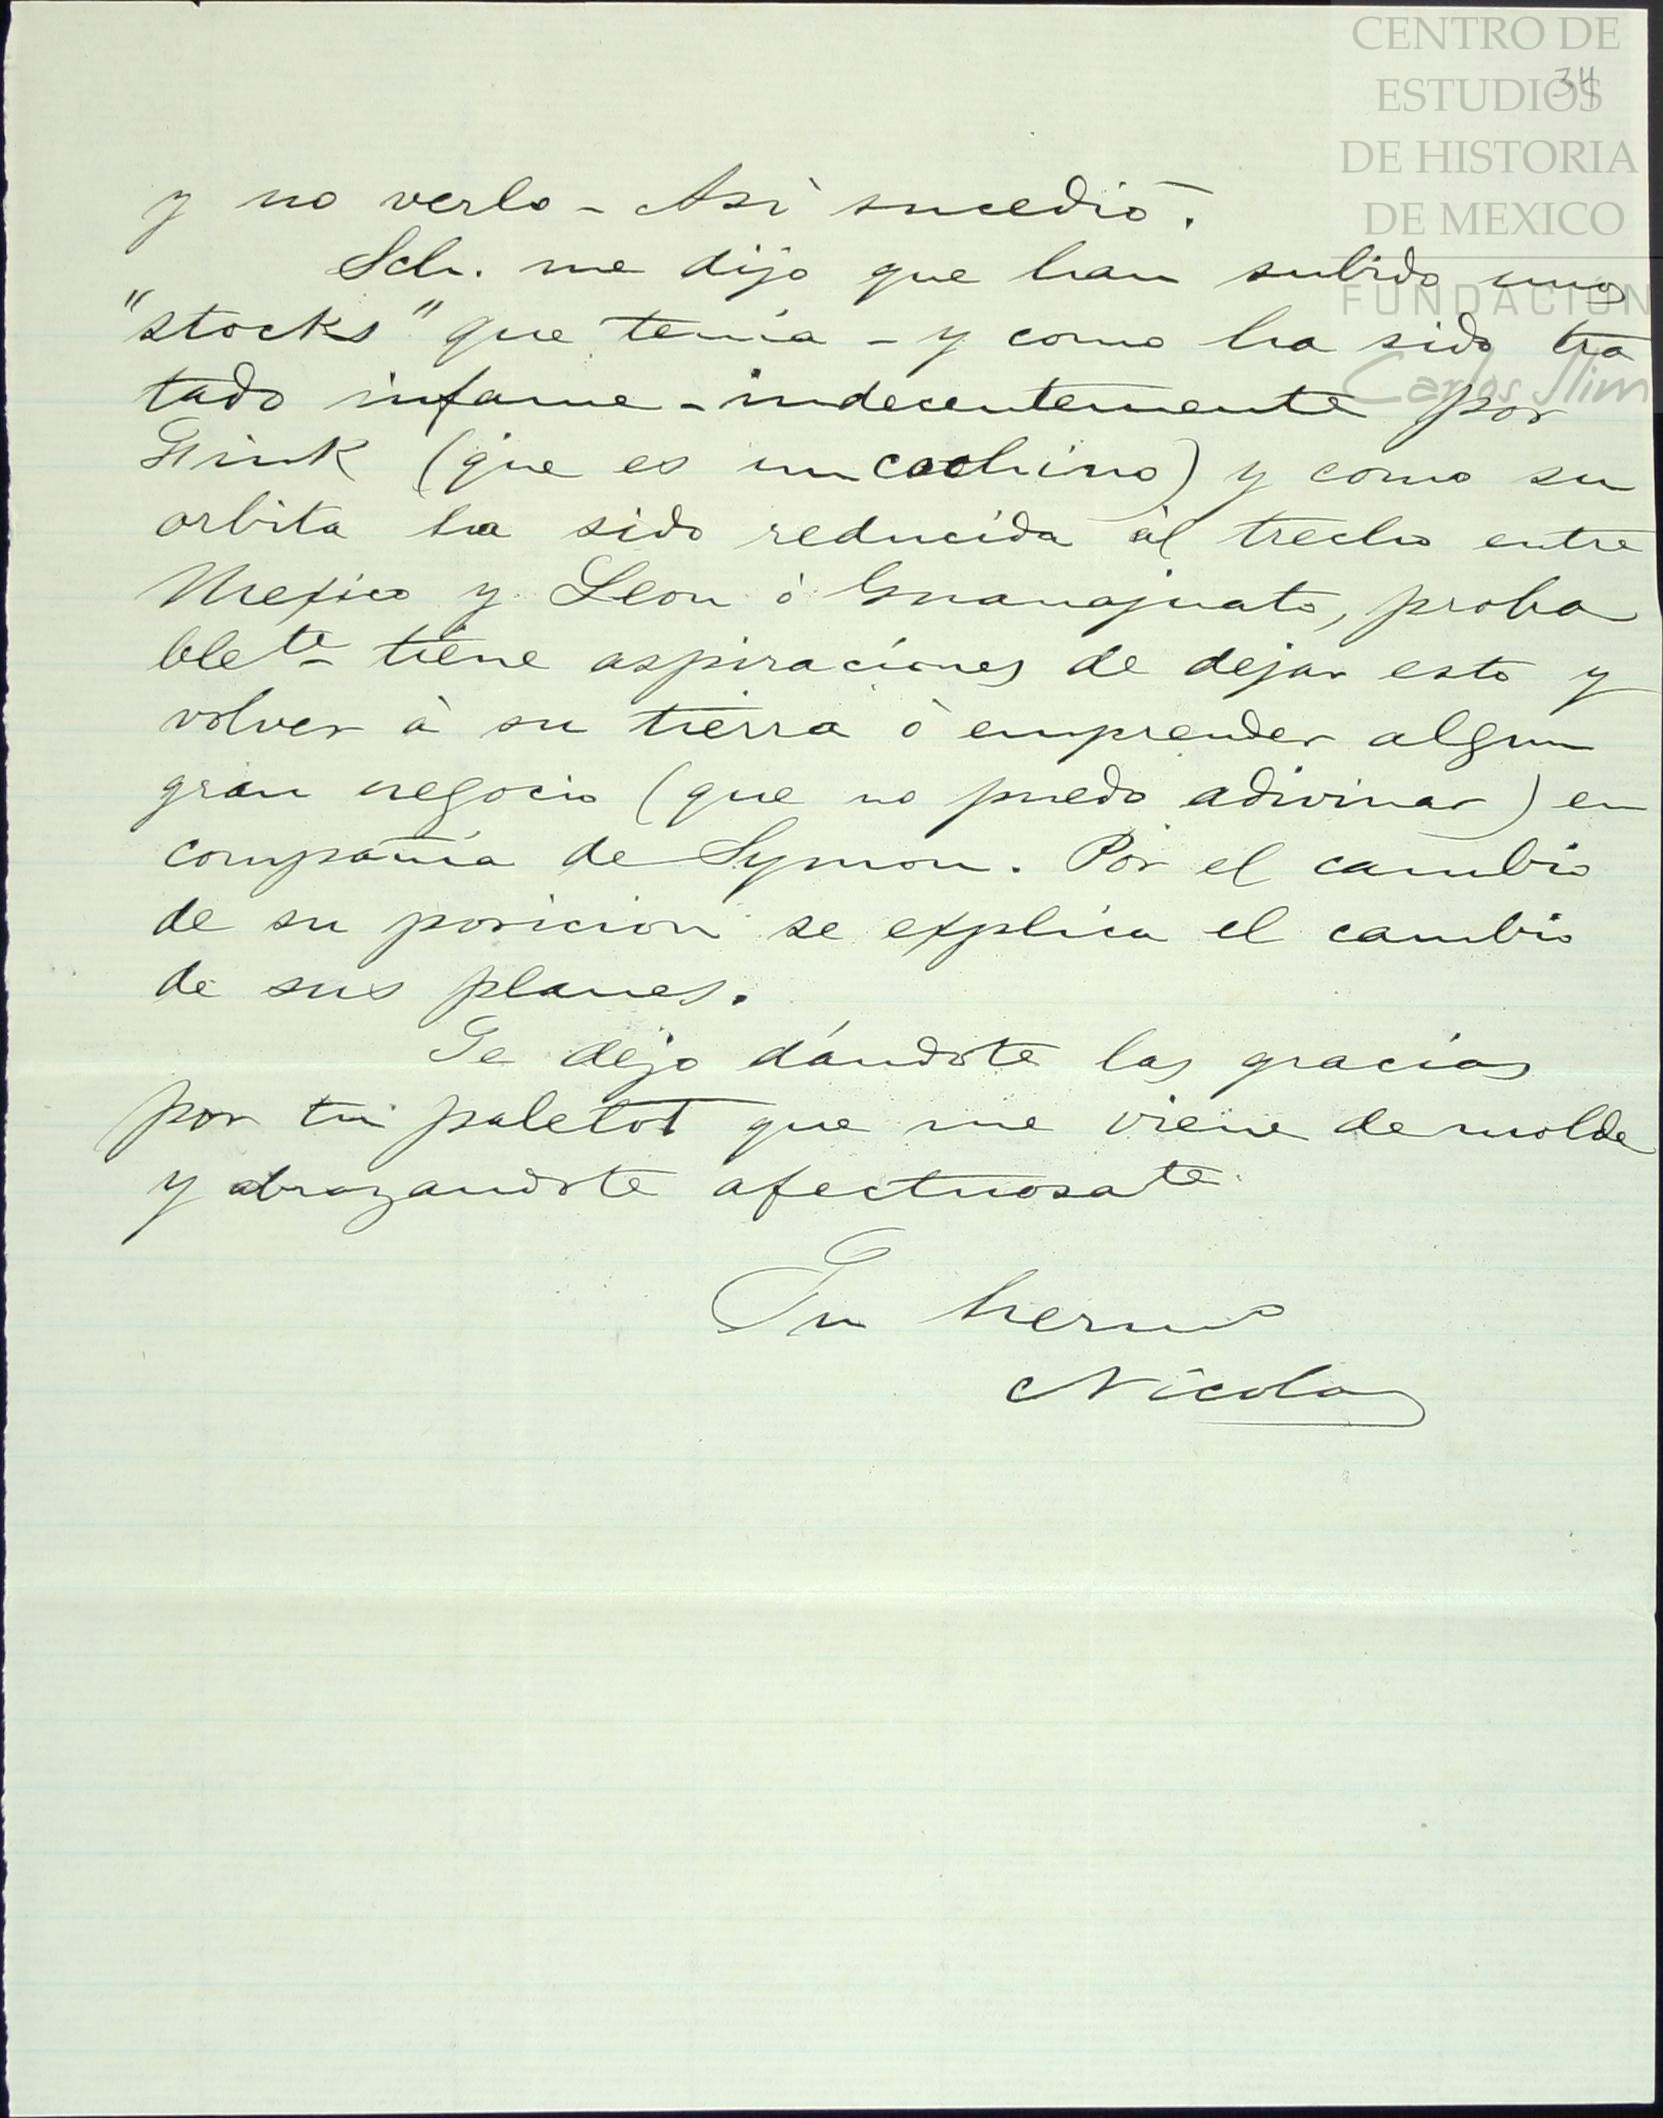 CENTRO DE
ESTUDIOS
DE HISTORIA
DE MEXICO
FUNDACION
Carlos Slim
34
y no verlo - Asi sucedió.
Sch. me dijo que han subido unos
"stocks" que tenía - y como ha sido tra
tado infame - indecentemente por
Fink (que es un cochino) y como su
orbita ha sido reducida al trecho entre
Mexico y Leon ó Guanajuato, proba
blete tiene aspiraciones de dejar esto y
volver à su tierra ò emprender algun
gran negocio (que no puedo adivinar) en
compañía de Symon. Por el cambio
de su posicion se explica el cambio
de sus planes.
Te dejo dándote las gracias
por tu paletot que me viene de molde
y abrazandote afectuosate
Tu hermo
Nicolas